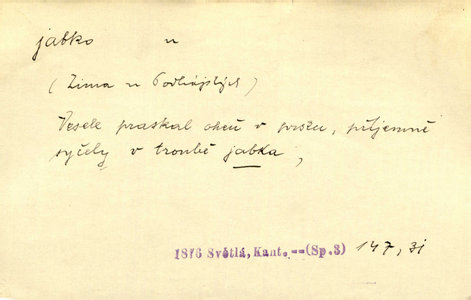 jabko n
(Zima u Podhájských)
Vesele praskal oheň v prsku, příjemně
syčely v troubě jabka,
1876 Světlá, Kant. --(Sp.3) 147, 31